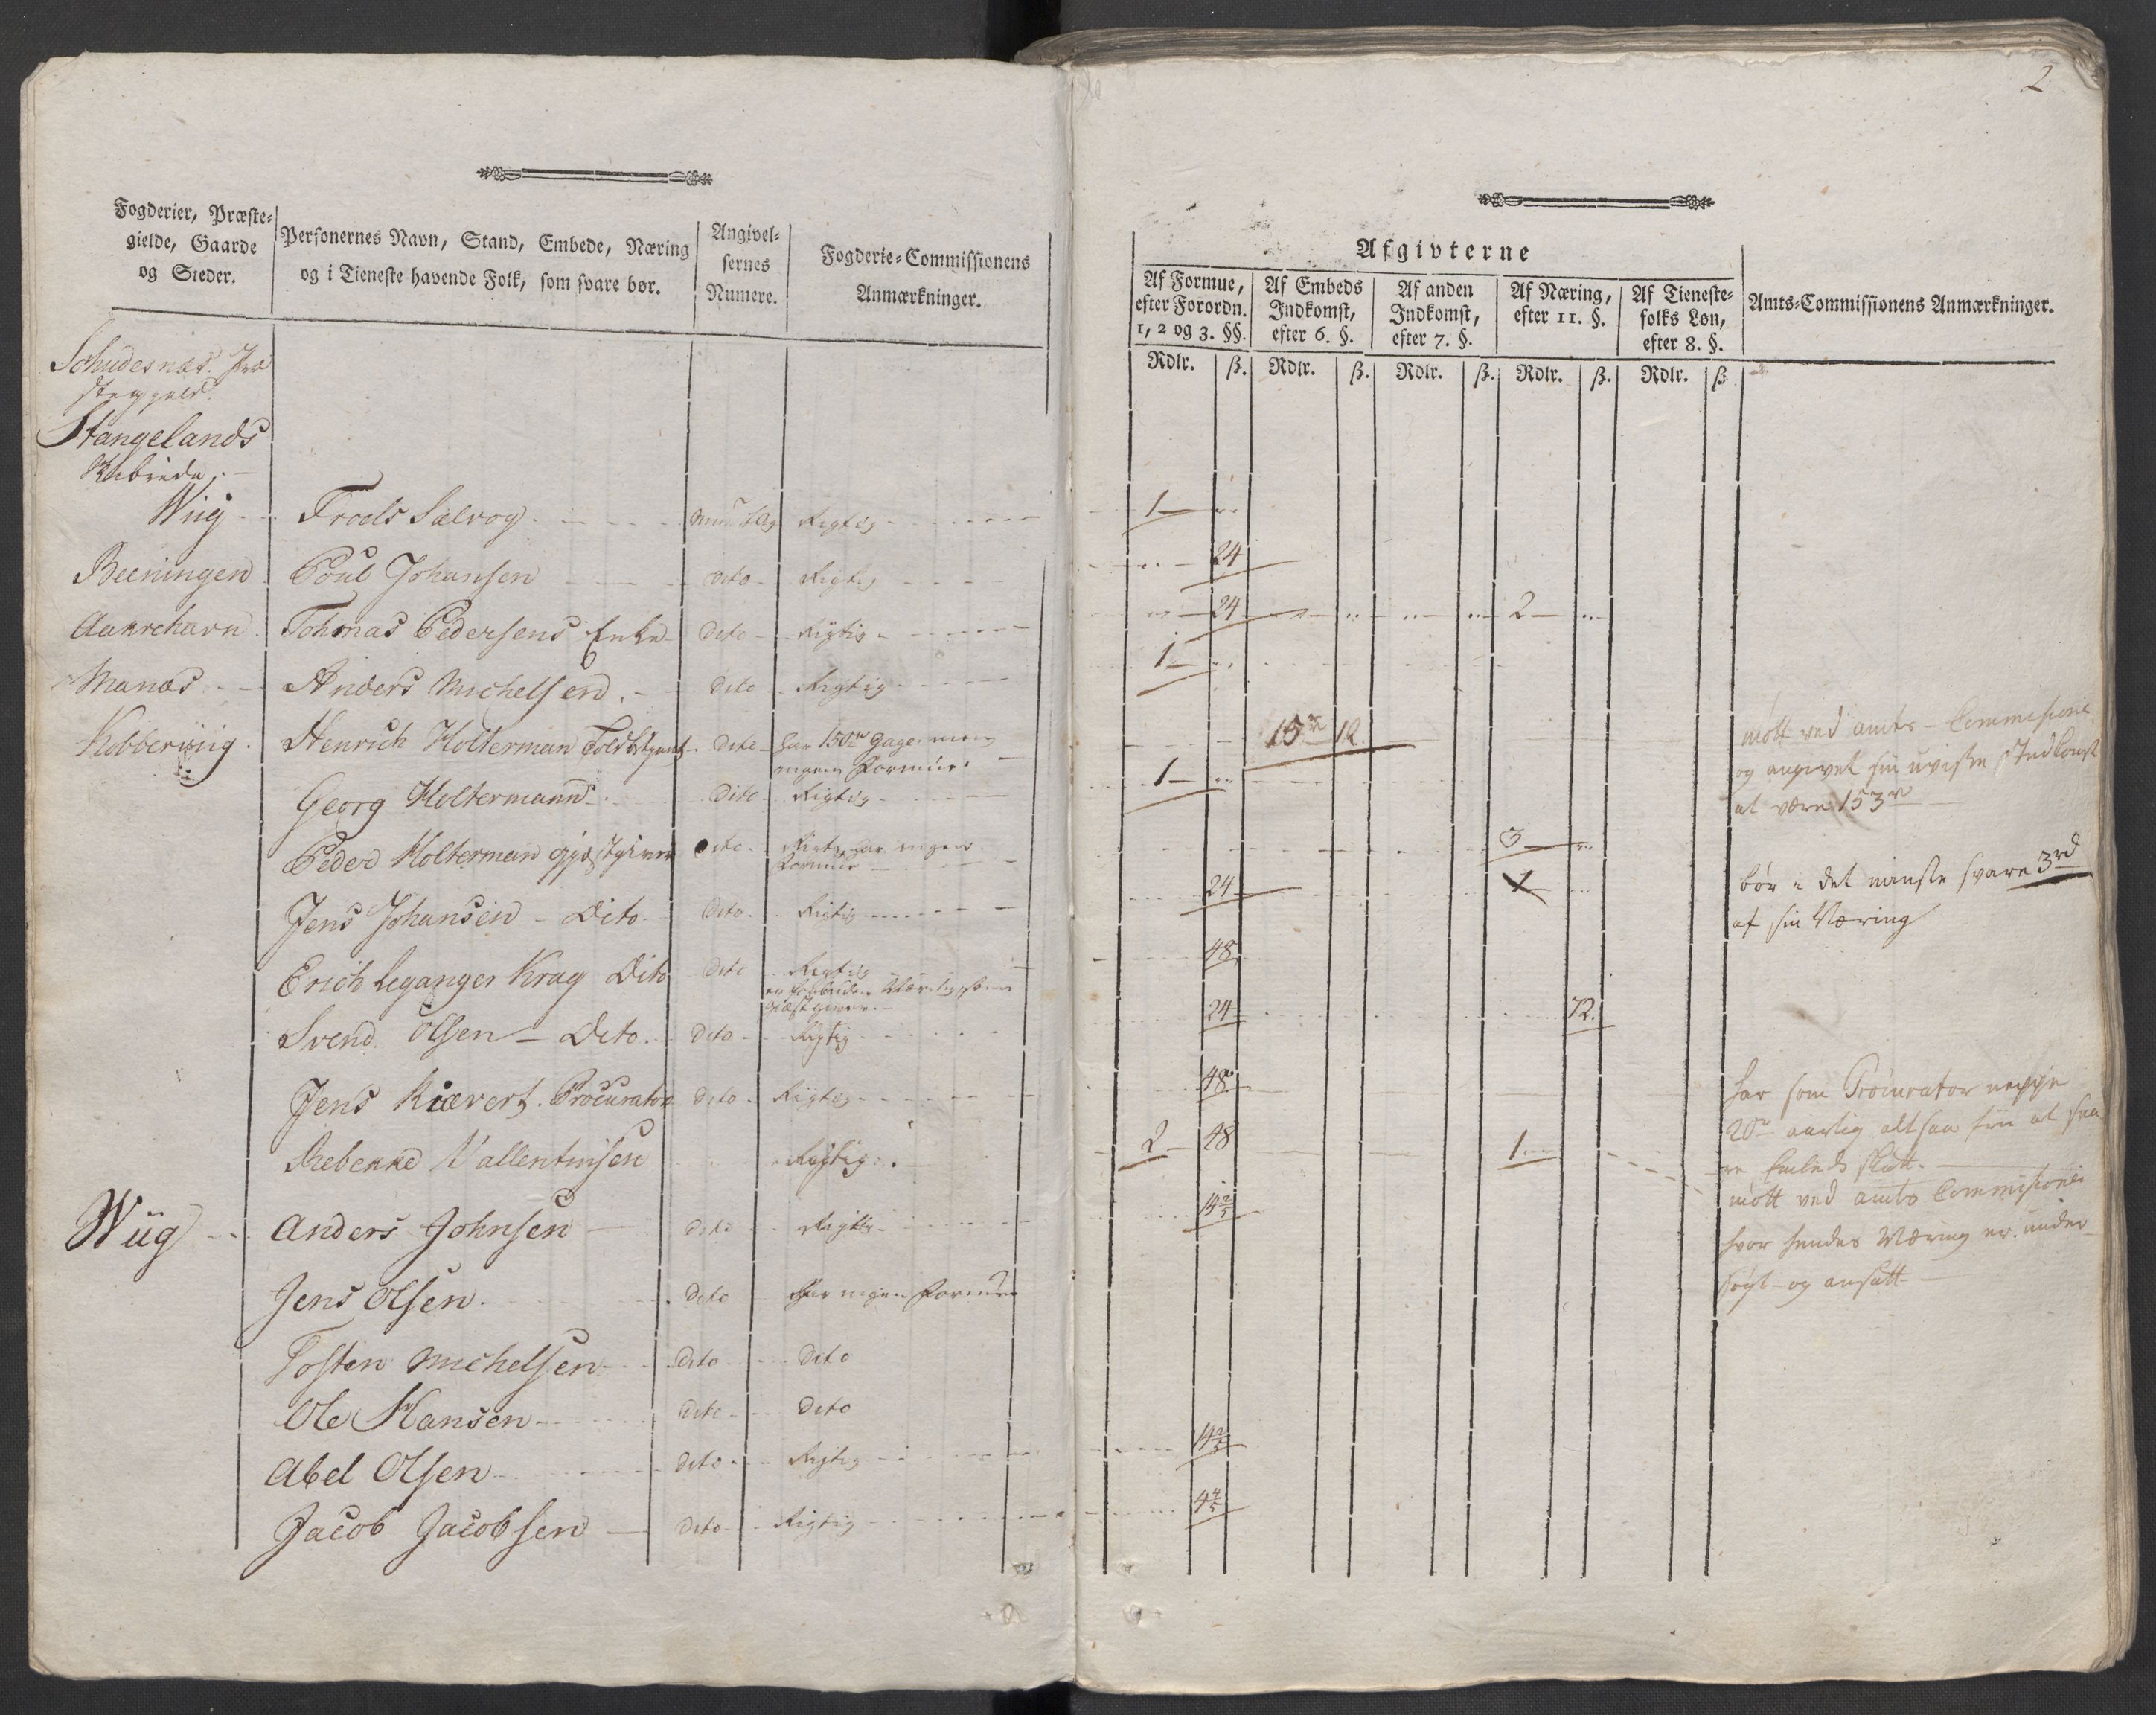 Fogderier, Præste-
gielde, Gaarde
og Steder.
Personernes Navn, Stand, Embede, Næring
og i Tieneste havende Folk, som svare bør.
Angivel-
sernes
Numere.
Fogderie-Commissionens
Anmærkninger.
Schudesnæs Præ
stegield
Stangelands
Skibrede
Wiig Frods Salvog Rigtig
Beeningen Poul Johansen dito Rigtig
Aakrehavn Tohmas Pedersens Enke Dito Rigtig
Manæs Anders Michelsen dito Rigtig
Kobberwiig Henrich Holterman dito har 150 rd Gage men
ingen Formue
Georg Holtermann Dito Rigtig
Peder Holterman gjæstgiver dito Rigtig har ingen
Formue
Jens Johansen - Dito dito Rigtig
Erich Leganger Krag Dito dito Rigtig
Næring som
Giæstgiver
Svend Olsen - Dito dito Rigtig
Jens Kiævert Procurator dito Rigtig
Rebekke Vallentinsen Rigtig
Wiig Anders Johnsen dito Rigtig
Jens Olsen dito har ingen Formue
Tosten Michelsen dito dito
Ole Hansen dito dito
Abel Olsen dito Rigtig
Jacob Jacobsen dito Rigtig
2
Afgivterne
Af Formue,
efter Forordn.
1, 2 og 3. §§.
Af Embeds
Indkomst,
efter 6. §.
Af anden
Indkomst,
efter 7. §.
Af Næring,
efter 11. §.
Af Tieneste-
folks Løn,
efter 8. §.
Amts-Commissionens Anmærkninger.
Rdlr. ß. Rdlr. ß. Rdlr. ß. Rdlr. ß. Rdlr. ß
1
24
24 2
1
15 12
mött ved amts-Commissionen
og angivet sin uvisse Indkomst
at være 153 rd
1
3
24 1
bör i det minste svare 3 rd
af sin Næring
48
24 72
48
har som Procurator neppe
20 rd aarlig altsaa fri at sva
re Embeds skatt.
2 48 1
mött ved amts Commissionen
hvor hendes Næring er under
søgt og ansatt
14 2/5
14 2/5
4 4/5